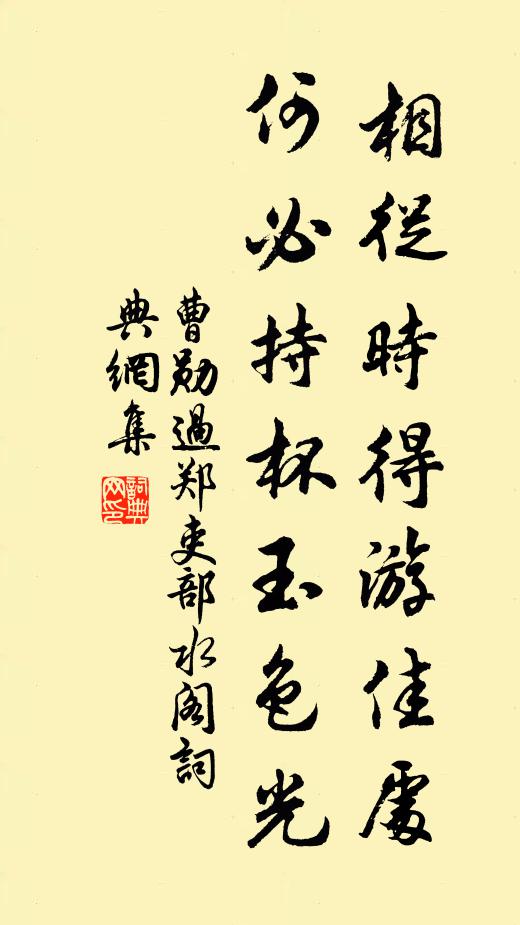 相從時得游佳處
何必持杯玉色光
曹勛過郑吏部水阁詞
典網集
詞典网印